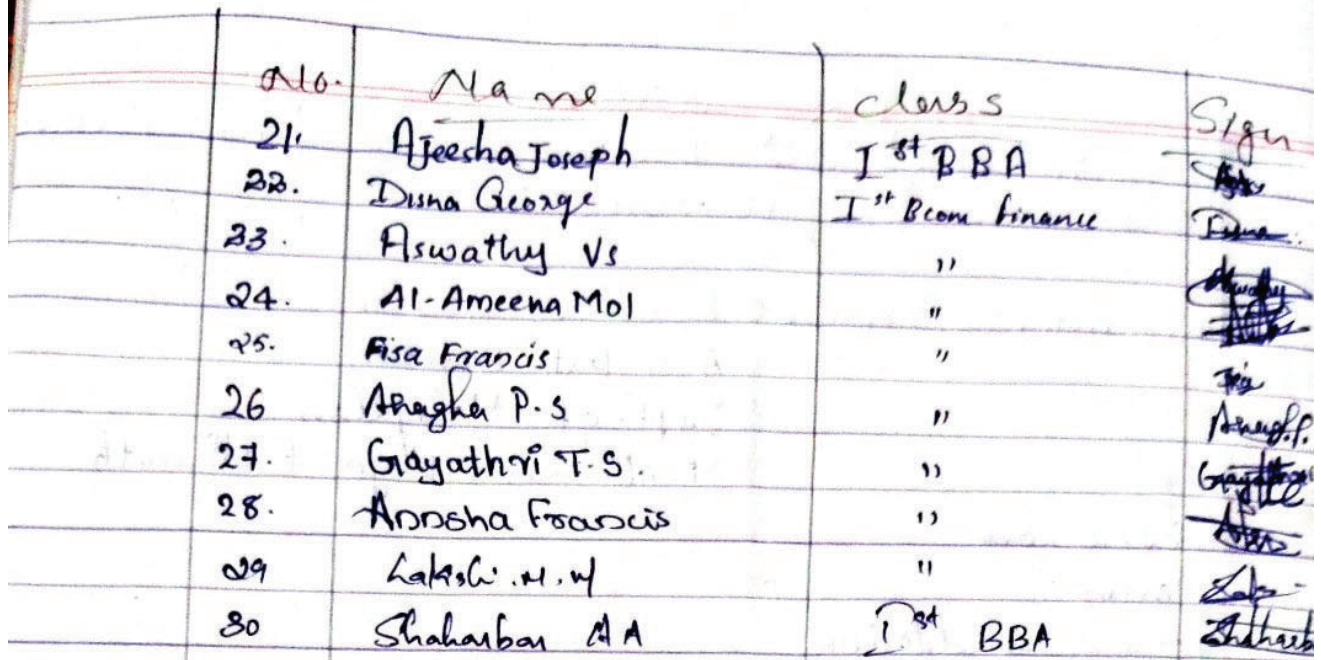 No. Name Class Sign
21. Ajeesha Joseph Ist BBA
22. Disna George Ist Bcom finance Disna
23. Aswathy Vs " Aswathy
24. Al-Ameena Mol "
25. Fisa Francis "
26 Anagha P.S "
27. Gayathri T.S. " Gayathri
28. Annsha Francis "
29 "
30 Shaharban A A Ist BBA